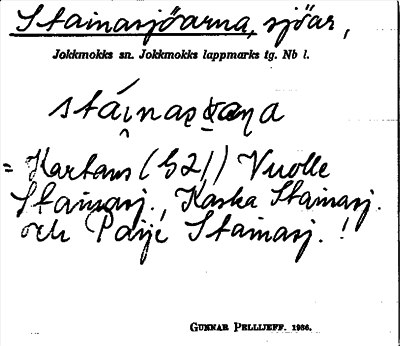 Stainasjöarna, sjöar,
Jokkmokks sn. Jokkmokks lappmarks tg. Nb l.
= Kartans (bl 21) Vuolle
Stainasj., Kaska Stainasj.
och Paije Stainasj. !
GUNNAR PELLIJEFF. 1986.